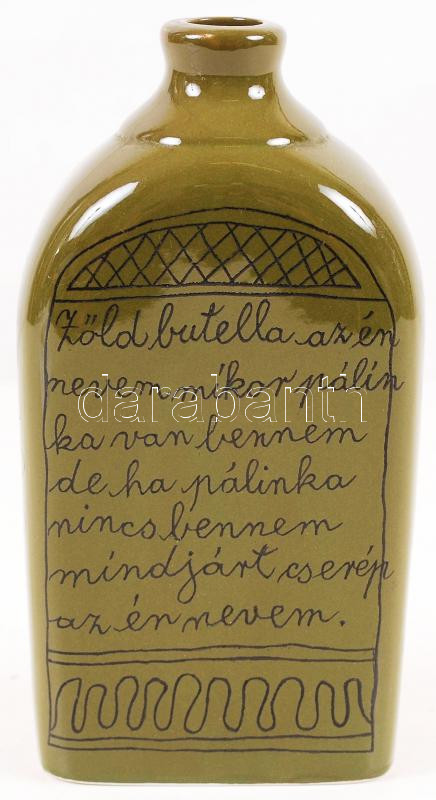 Zöld butella az én
nevem mikor pálin
ka van bennem
darabanth
de ha pálinka
nincs bennem
mindjárt cserép
az én nevem.